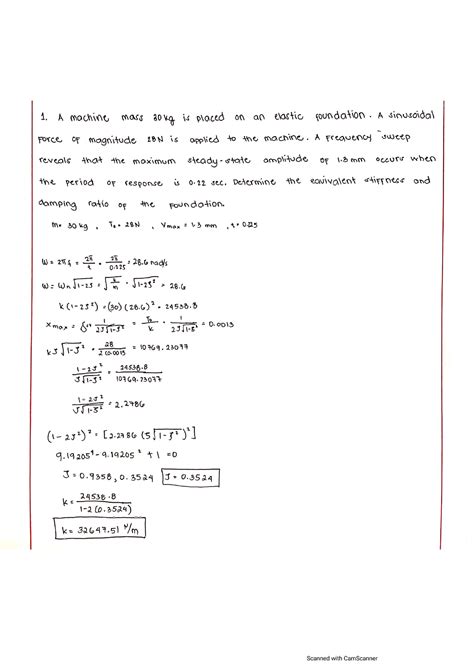 1. A machine mass 30 kg is placed on an elastic foundation. A sinusoidal
force of magnitude 28N is applied to the machine. A frequency sweep
reveals that the maximum steady-state amplitude of 1.3 mm occurs when
the period of response is 0.22 sec. Determine the equivalent stiffness and
damping ratio of the foundation.
m= 30 kg , F₀ = 28N , Vmax = 1.3 mm , t = 0.22s
ω = 2πf = 2π/t = 2π/0.22s = 28.6 rad/s
k(1-2ζ²) = (30)(28.6)² = 24538.8
kζ√1-ζ² = 28/2(0.0013) = 10769.23077
1-2ζ²/ζ√1-ζ² = 24538.8/10769.23077
1-2ζ²/ζ√1-ζ² = 2.2786
(1-2ζ²)² = [2.2786 (ζ√1-ζ²)²]
9.1920ζ⁴-9.1920ζ² +1 =0
ζ = 0.9358, 0.3524 ζ = 0.3524
k = 24538.8/1-2(0.3524)
k = 32647.51 N/m
Scanned with CamScanner